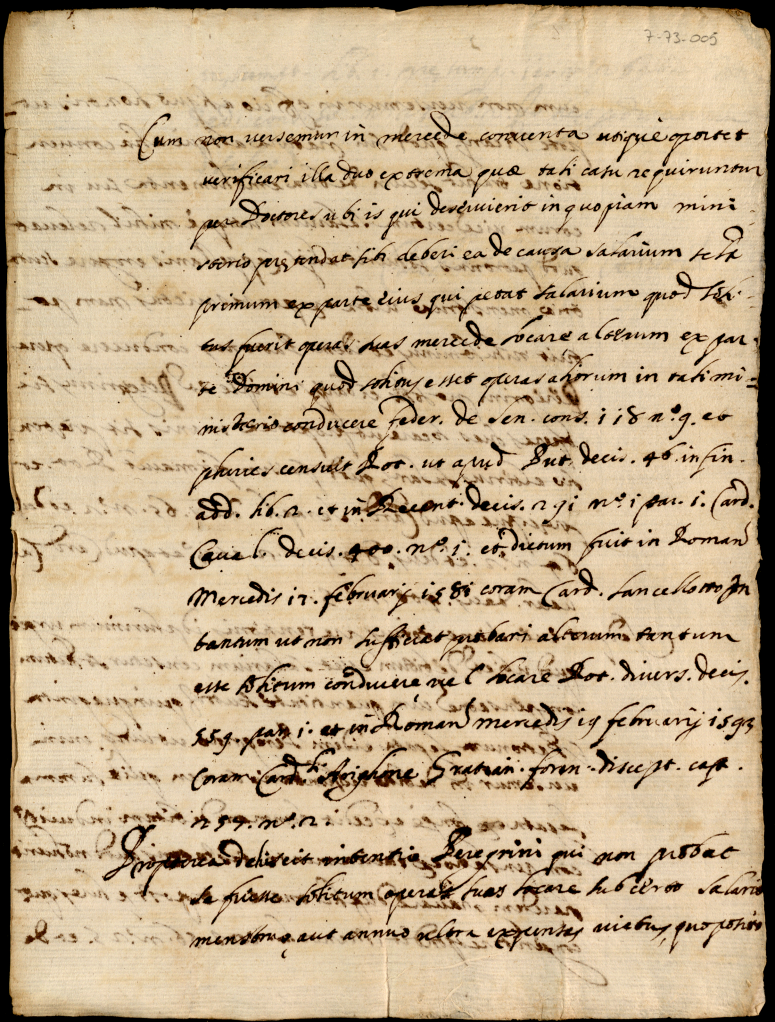 7-73-005
Cum non versemur in mercede conventa utique oportet
verificari illa duo extrema quæ tali casu requiruntur
per Doctores ubi is qui deservierit in quopiam mini-
sterio prętendat sibi deberi ea de causa salarium
primum ex parte eius qui petat salarium quod soli-
tus fuerit operas suas mercede locare alterum ex par-
te Domini quod solitus esset operas aliorum in tali mi-
nisterio conducere feder. de sen. cons. 118 nº. 9. et
pluries censuit Rot. ut apud But. decis. 46. in fin.
add. lib. 2. et in Recent. decis. 291 nº. 1 par. 1. Card.
Caval. decis. 400. nº. 1. et dictum fuit in Romana
Mercedis 17. februarij 1581 coram Card. Lancellotto In
tantum ut non sufficiat probari alterum tantum
esse solitum conducere vel locare Rot. divers. decis.
559. par. 1. et in Romana mercedis 19 februarij 1593
coram Card.li Arighone Gratian. foren. discept. cap.
259. nº. 2
Propterea deficit intentio Peregrini qui non probat
se fuisse solitum operas suas locare sub certo salario
menstruo aut annuo ultra expensas victus, quo posito